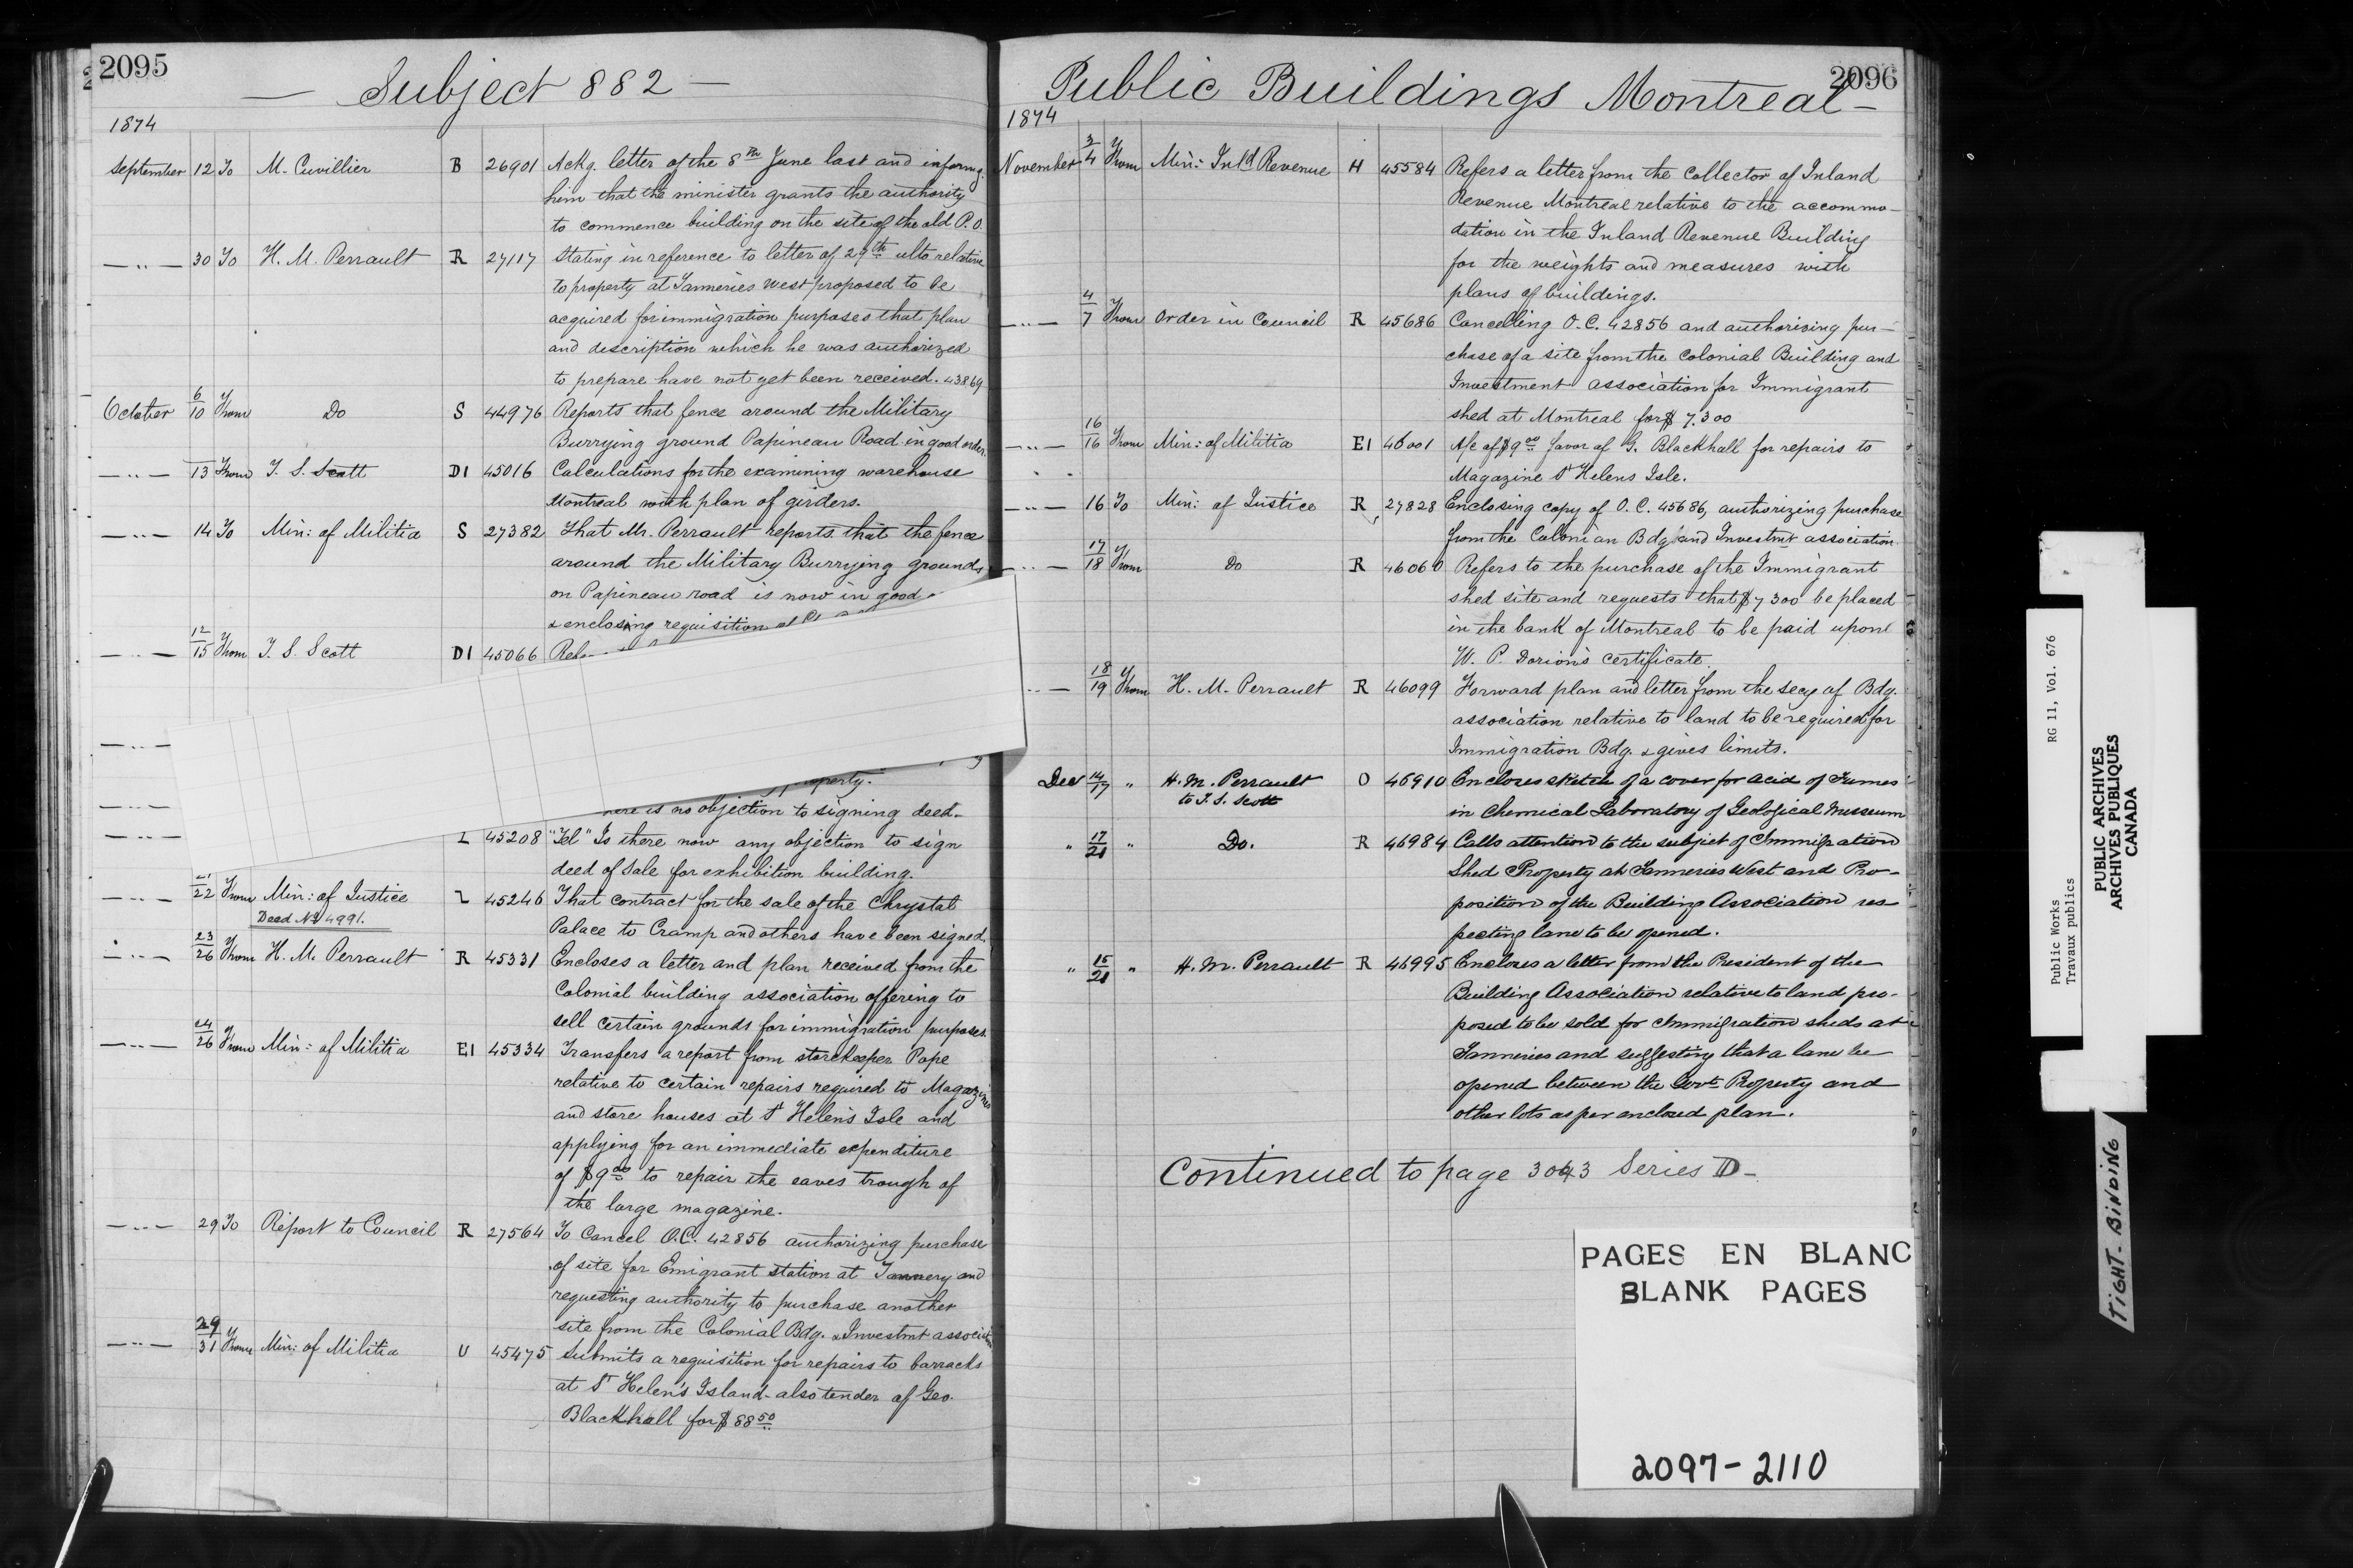 2095
Subject 882 —
1874
September 12 To M. Cuvillier B 26901 Ackg. letter of the 8th June last and informg.
him that the minister grants the authority
to commence building on the site of the old P.O.
— " — 30 To H. M. Perrault R 27117 Stating in reference to letter of 29th ulto relative
to property at Tanneries West proposed to be
acquired for immigration purposes that plan
and description which he was authorized
to prepare have not yet been received. 43869
October 6/10 From Do S 44976 Reports that fence around the Military
Burrying ground Papineau Road in good order.
— " — 13 From T. S. Scott D1 45016 Calculations for the examining warehouse
Montreal with plan of girders.
— " — 14 To Min: of Militia S 27382 That Mr. Perrault reports that the fence
around the Military Burrying grounds
on Papineau road is now in good
& enclosing requisition
— " — 12/15 From T. S. Scott D1 45066
— " —
operty.
— " — here is no objection to signing deed.
— " — L 45208 "Tel" Is there now any objection to sign
deed of sale for exhibition building.
— " — 21/22 From Min: of Justice L 45246 That contract for the sale of the Chrystal
Deed No 4991.
Palace to Cramp and others have been signed.
— " — 23/26 From H. M. Perrault R 45331 Encloses a letter and plan received from the
Colonial building association offering to
sell certain grounds for immigration purposes.
— " — 24/26 From Min: of Militia E1 45334 Transfers a report from storekeeper Pope
relative to certain repairs required to Magazines
and store houses at St Helen's Isle and
applying for an immediate expenditure
of $9.00 to repair the eaves trough of
the large magazine.
— " — 29 To Report to Council R 27564 To Cancel O.C. 42856 authorizing purchase
of site for Emigrant station at Tannery and
requesting authority to purchase another
site from the Colonial Bdg. & Investmt association
— " — 29/31 From Min: of Militia U 45475 Submits a requisition for repairs to barracks
at St Helen's Island - also tender of Geo.
Blackhall for $88.50
2096
Public Buildings Montreal —
1874
November 3/4 From Min: Inld Revenue H 45584 Refers a letter from the Collector of Inland
Revenue Montreal relative to the accommo-
dation in the Inland Revenue Building
for the weights and measures with
plans of buildings.
— " — 4/7 From Order in Council R 45686 Cancelling O.C. 42856 and authorizing pur-
chase of a site from the Colonial Building and
Investment association for Immigrant
shed at Montreal for $7.300
— " — 16/16 From Min: of Militia E1 46001 A/c of $9.00 favor of G. Blackhall for repairs to
Magazine St Helens Isle.
— " — 16 To Min: of Justice R 27828 Enclosing copy of O.C. 45686, authorizing purchase
from the Colonian Bdg and Investmt association.
— " — 17/18 From Do R 46060 Refers to the purchase of the Immigrant
shed site and requests that $7300 be placed
in the bank of Montreal to be paid upon
W. P. Dorion's certificate.
— " — 18/19 From H. M. Perrault R 46099 Forward plan and letter from the secy of Bdg.
association relative to land to be required for
Immigration Bdg. & gives limits.
Dec 14/17 " H. M. Perrault O 46910 Encloses sketch of a cover for acid of Fumes
to T. S. Scott
in Chemical Laboratory of Geological Museum
" 17/21 " Do. R 46984 Calls attention to the subject of Immigration
Shed Property at Tanneries West and Pro-
position of the Building Association res-
pecting lane to be opened.
" 15/21 " H. M. Perrault R 46995 Encloses a letter from the President of the
Building Association relative to land pro-
posed to be sold for Immigration sheds at
Tanneries and suggesting that a lane be
opened between the Govt Property and
other lots as per enclosed plan.
Continued to page 3043 Series D —
PAGES EN BLANC
BLANK PAGES
2097-2110
Public Works RG 11, Vol. 676
Travaux publics
PUBLIC ARCHIVES
ARCHIVES PUBLIQUES
CANADA
TIGHT BINDING